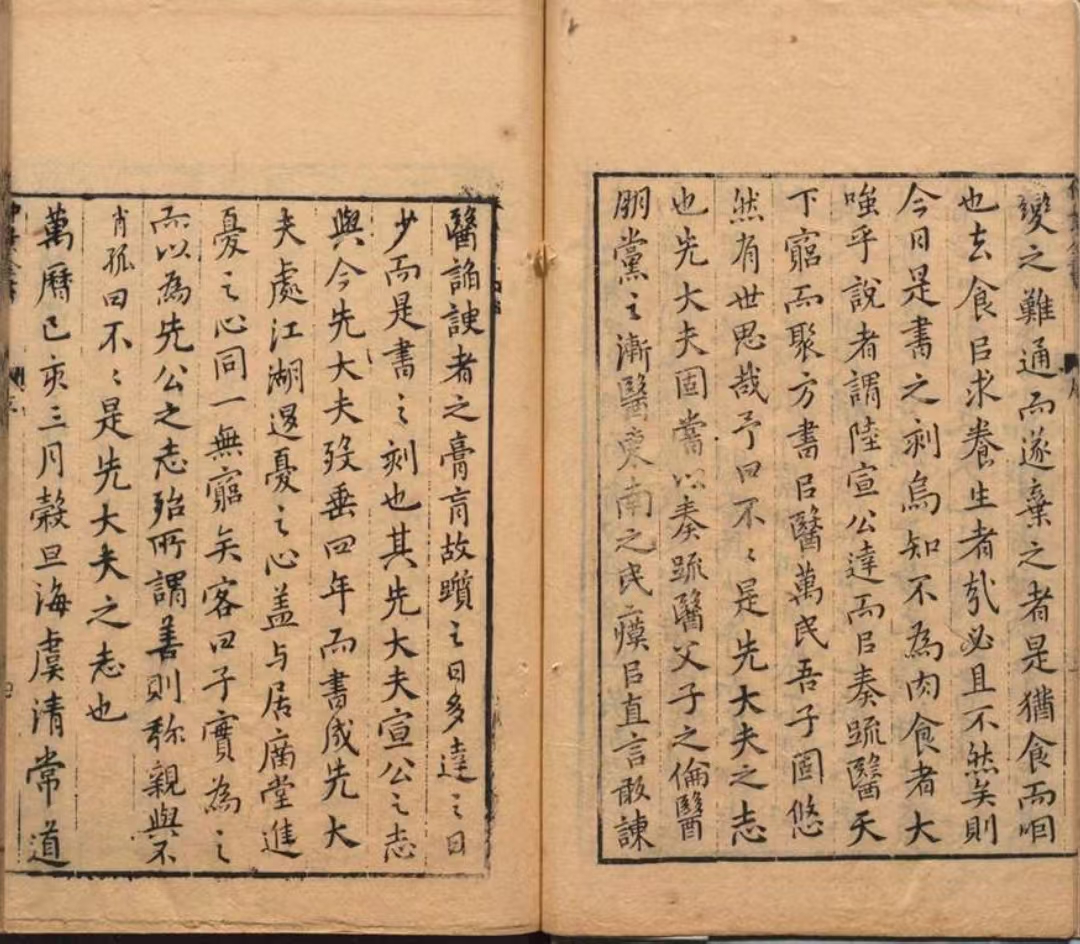 變之難通而遂棄之者是猶食而咽
也去食㠯求養生者哉必且不然矣則
今日是書之刻烏知不為肉食者大
嗤乎說者謂陸宣公達而㠯奏疏醫天
下窮而聚方書㠯醫萬民吾子固悠
然有世思哉予曰不〻是先大夫之志
也先大夫固嘗以奏疏醫父子之倫醫
朋黨之漸醫東南之民瘼㠯直言敢諫
醫諂諛者之膏肓故躓之日多達之日
少而是書之刻也其先大夫宣公之志
與今先大夫歿垂四年而書成先大
夫處江湖退憂之心盖与居廟堂進
憂之心同一無窮矣客曰子實為之
而以為先公之志殆所謂善則稱親與不
肖孤曰不〻是先大夫之志也
萬曆己亥三月穀旦海虞清常道